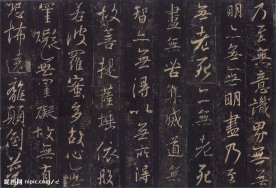 乃至無意識界無無
明亦無無明盡乃至
無老死亦無老死
盡無苦集滅道無
智亦無得以無所得
故菩提薩埵依般
若波羅蜜多故心無
罣礙無罣礙故無有
恐怖遠離顛倒夢
昵图网 nipic.com